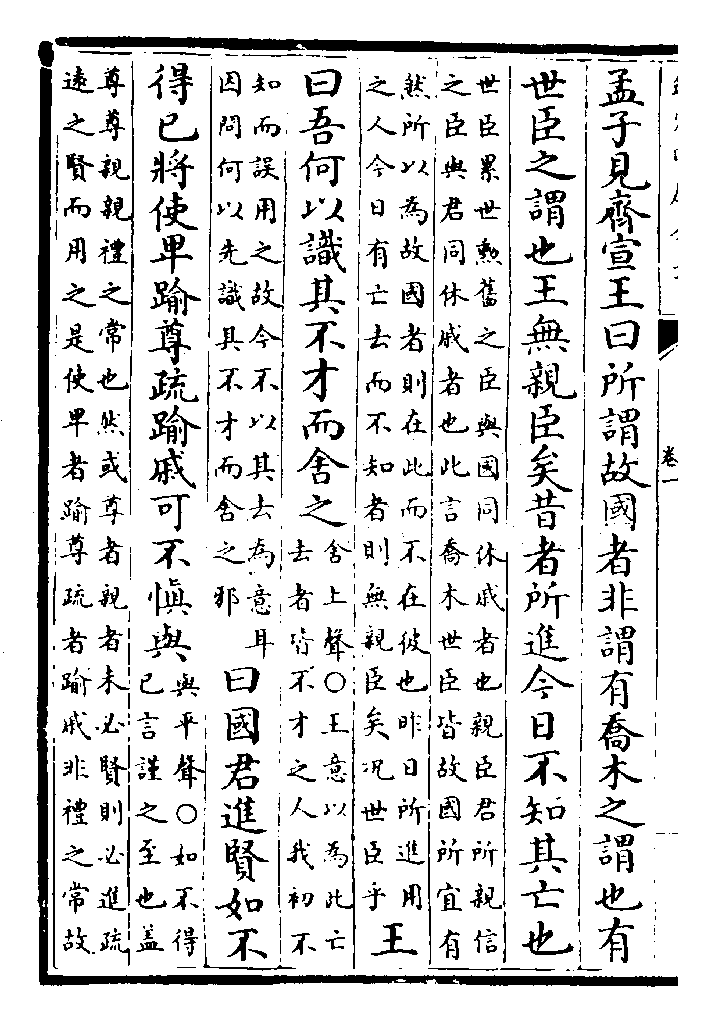 卷一
孟子見齊宣王曰所謂故國者非謂有喬木之謂也有
世臣之謂也王無親臣矣昔者所進今日不知其亡也
世臣累世勲舊之臣與國同休戚者也親臣君所親信
之臣與君同休戚者也此言喬木世臣皆故國所宜有
然所以為故國者則在此而不在彼也昨日所進用
之人今日有亡去而不知者則無親臣矣况世臣乎
王
曰吾何以識其不才而舍之
舍上聲○王意以為此亡
去者皆不才之人我初不
知而誤用之故今不以其去為意耳
因問何以先識其不才而舍之邪
曰國君進賢如不
得已將使卑踰尊疏踰戚可不慎與
與平聲○如不得
已言謹之至也盖
尊尊親親禮之常也然或尊者親者未必賢則必進疏
逺之賢而用之是使卑者踰尊疏者踰戚非禮之常故